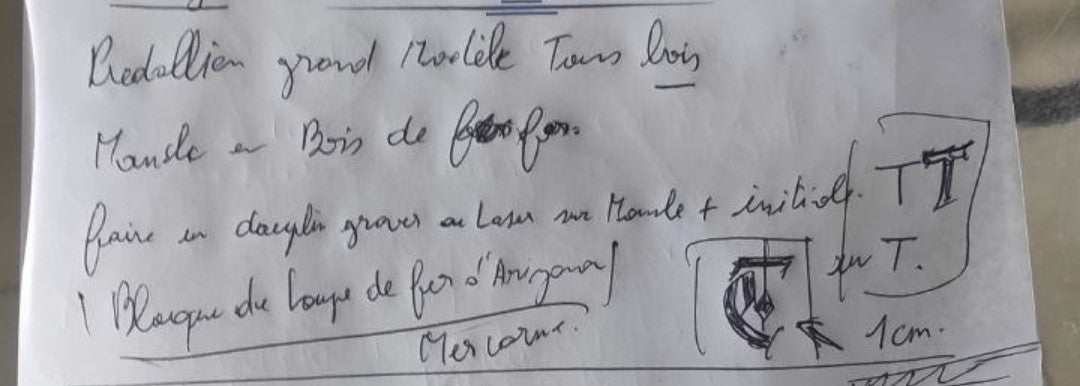 Medallien grand Modèle Tous bois
Manche en Bois de fer.
faire un dauphin graver au Laser sur Manche + initiale. T T
(Bloque de Loupe de fer d'Arizona) T.
1cm.